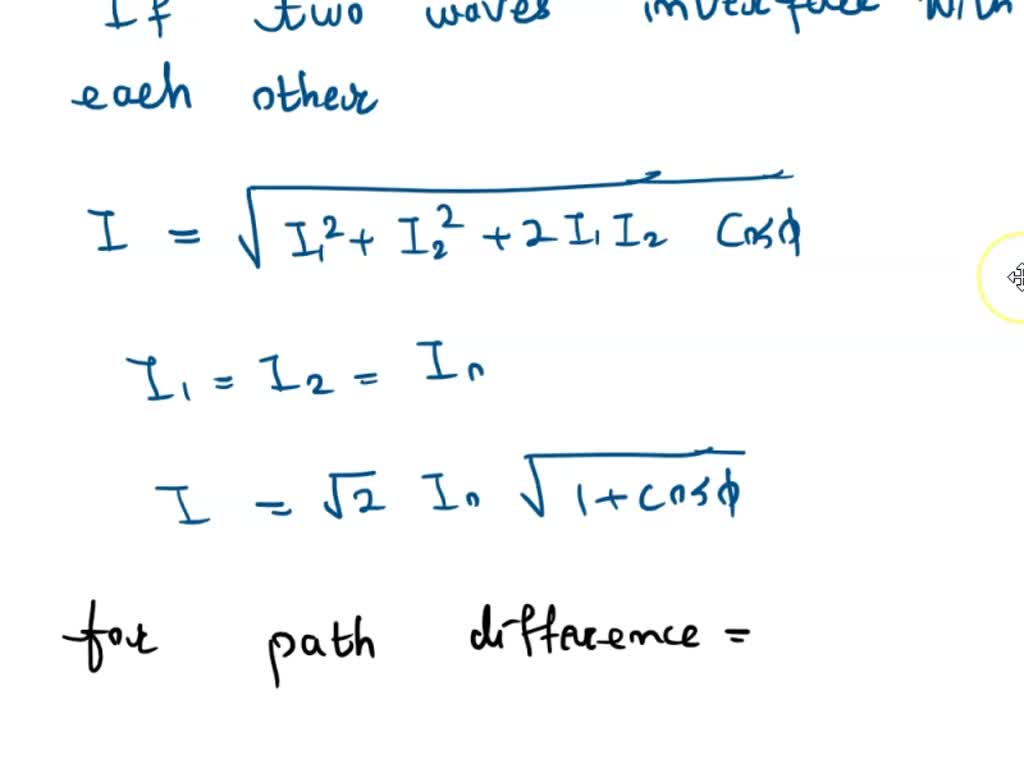 If two waves with
each other
I = √(I₁² + I₂² + 2 I₁ I₂ Cosϕ)
I₁ = I₂ = I₀
I = √2 I₀ √(1 + cosϕ)
for path difference =